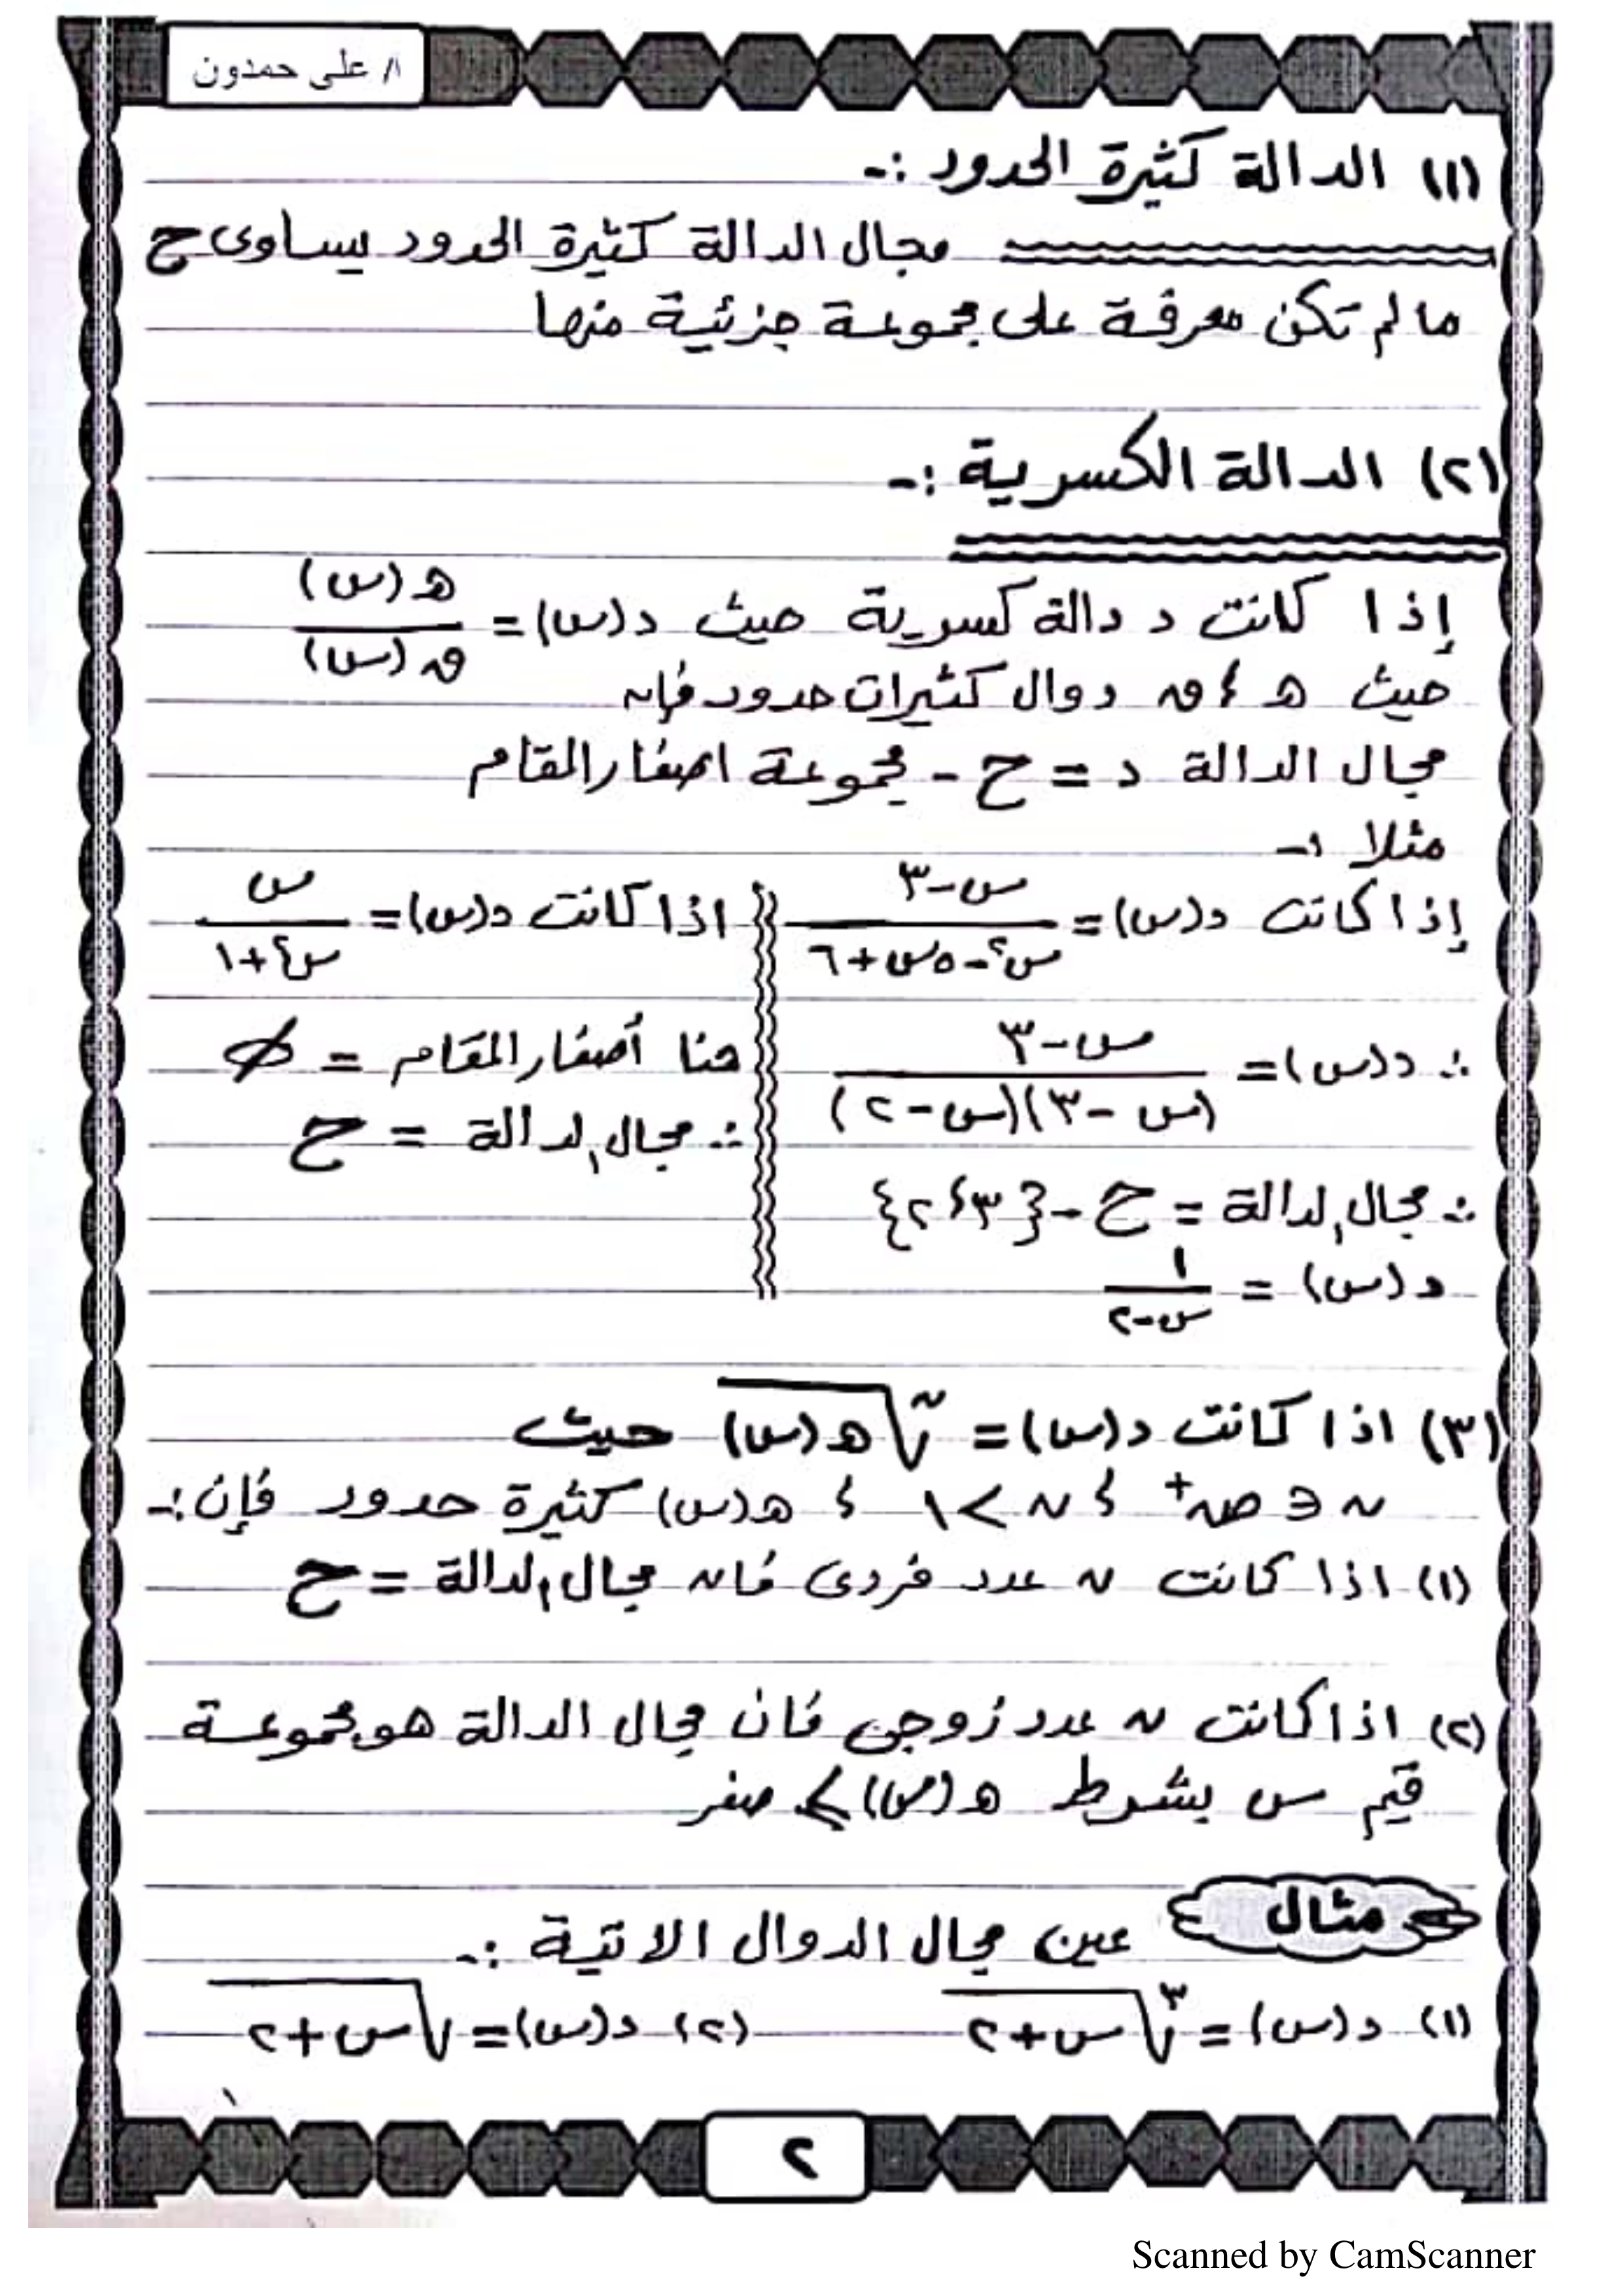 أ/ على حمدون
(١) الدالة كثيرة الحدود :-
مجال الدالة كثيرة الحدود يساوى ح
ما لم تكن معرفة على مجموعة جزئية منها
(٢) الدالة الكسرية :-
إذا كانت د دالة كسرية حيث د(س) = هـ(س) / ق(س)
حيث هـ ، ق دوال كثيرات حدود فإن
مجال الدالة د = ح - مجموعة اصفار المقام
مثلا :-
إذا كانت د(س) = س-٣ / س٢-٥س+٦
∴ د(س) = س-٣ / (س-٣)(س-٢)
∴ مجال الدالة = ح - {٣،٢}
د(س) = ١ / س-٢
اذا كانت د(س) = س / س٢+١
هنا أصفار المقام = ∅
∴ مجال الدالة = ح
(٣) اذا كانت د(س) = ن√هـ(س) حيث
ن ∈ ص+ ، ن > ١ ، هـ(س) كثيرة حدود فإن :-
(١) اذا كانت ن عدد فردى فان مجال الدالة = ح
(٢) اذا كانت ن عدد زوجى فان مجال الدالة هو مجموعة
قيم س بشرط هـ(س) ≥ صفر
مثال عين مجال الدوال الاتية :-
(١) د(س) = ٣√س+٢ (٢) د(س) = √س+٢
٢
Scanned by CamScanner